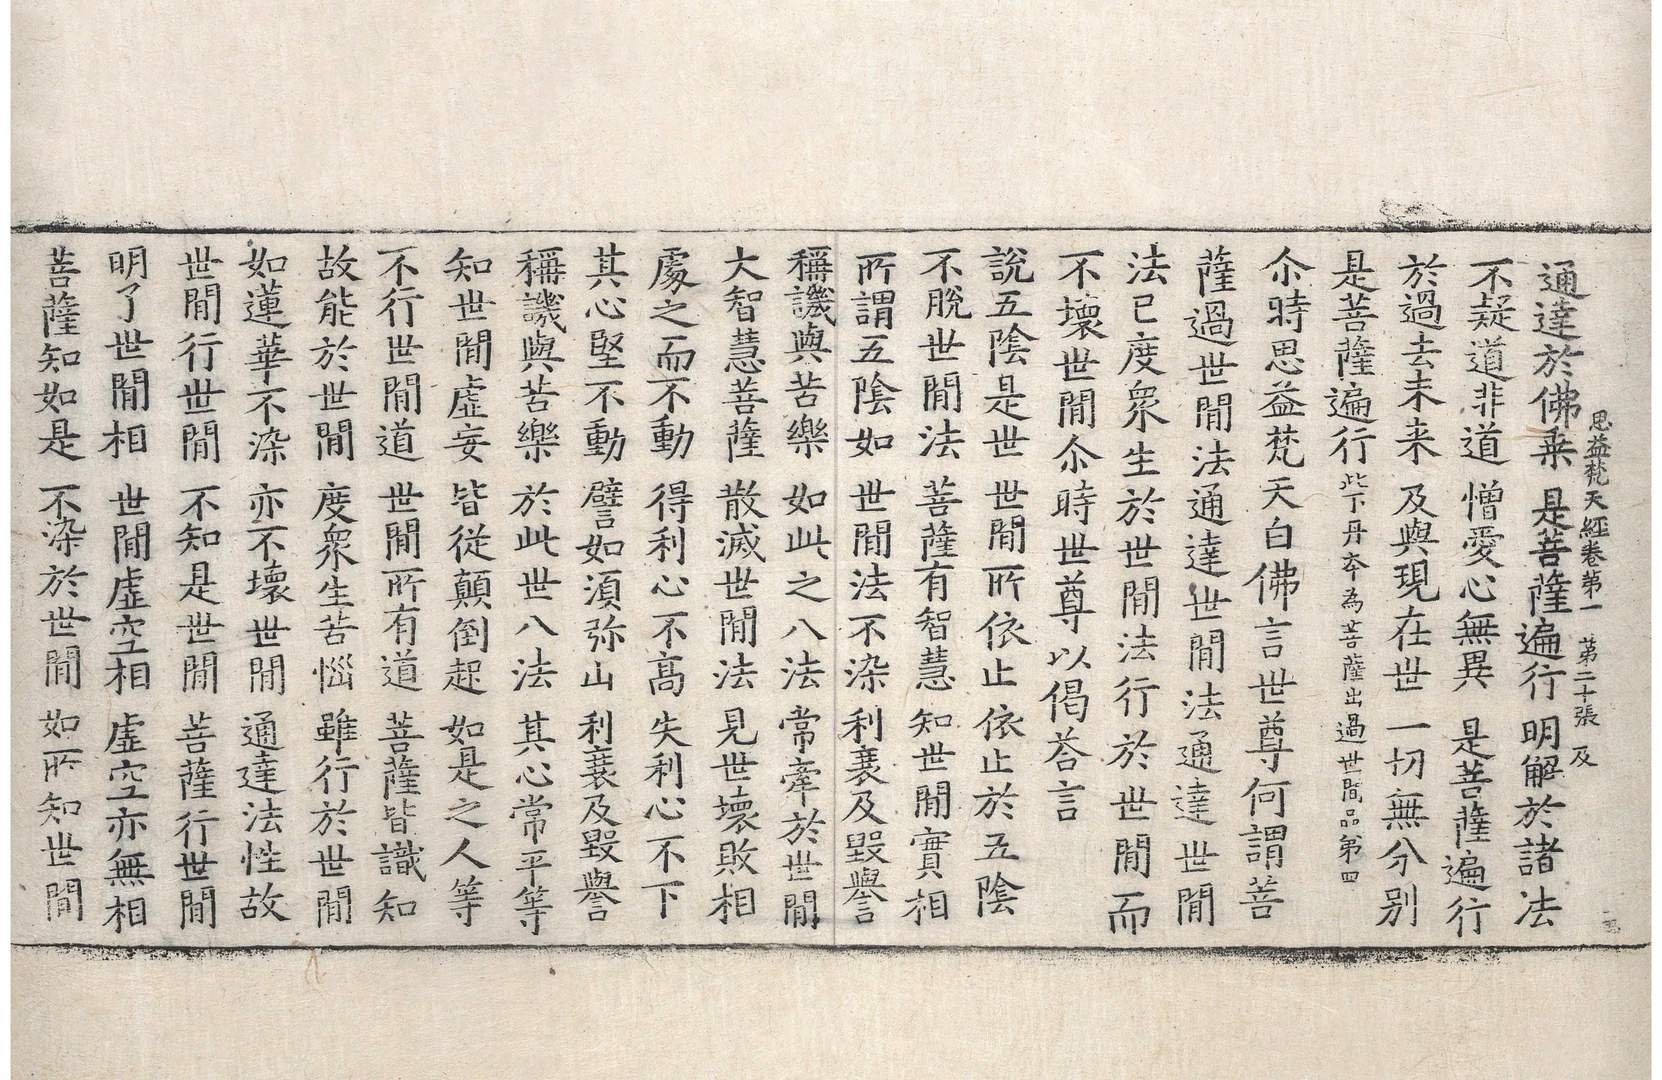 思益梵天経卷第一　第二十張　及
通達於佛乗　是菩薩遍行　明解於諸法
不疑道非道　憎愛心無異　是菩薩遍行
於過去未来　及與現在世　一切無分別
是菩薩遍行此下丹夲為菩薩出過世閒品第四
尒時思益梵天白佛言世尊何謂菩
薩過世閒法通達世閒法通達世閒
法已度衆生於世閒法行於世閒而
不壞世閒尒時世尊以偈荅言
說五陰是世　世閒所依止　依止於五陰
不脫世閒法　菩薩有智慧　知世閒實相
所謂五陰如　世閒法不染　利衰及毀譽
稱譏與苦樂　如此之八法　常牽於世閒
大智慧菩薩　散滅世閒法　見世壞敗相
處之而不動　得利心不髙　失利心不下
其心堅不動　譬如湏弥山　利衰及毀譽
稱譏與苦樂　於此世八法　其心常平等
知世閒虛妄　皆從顛倒起　如是之人等
不行世閒道　世閒所有道　菩薩皆識知
故能於世閒　度衆生苦惱　雖行於世閒
如蓮華不染　亦不壞世閒　通達法性故
世閒行世閒　不知是世閒　菩薩行世閒
明了世閒相　世閒虛空相　虛空亦無相
菩薩知如是　不染於世閒　如所知世閒